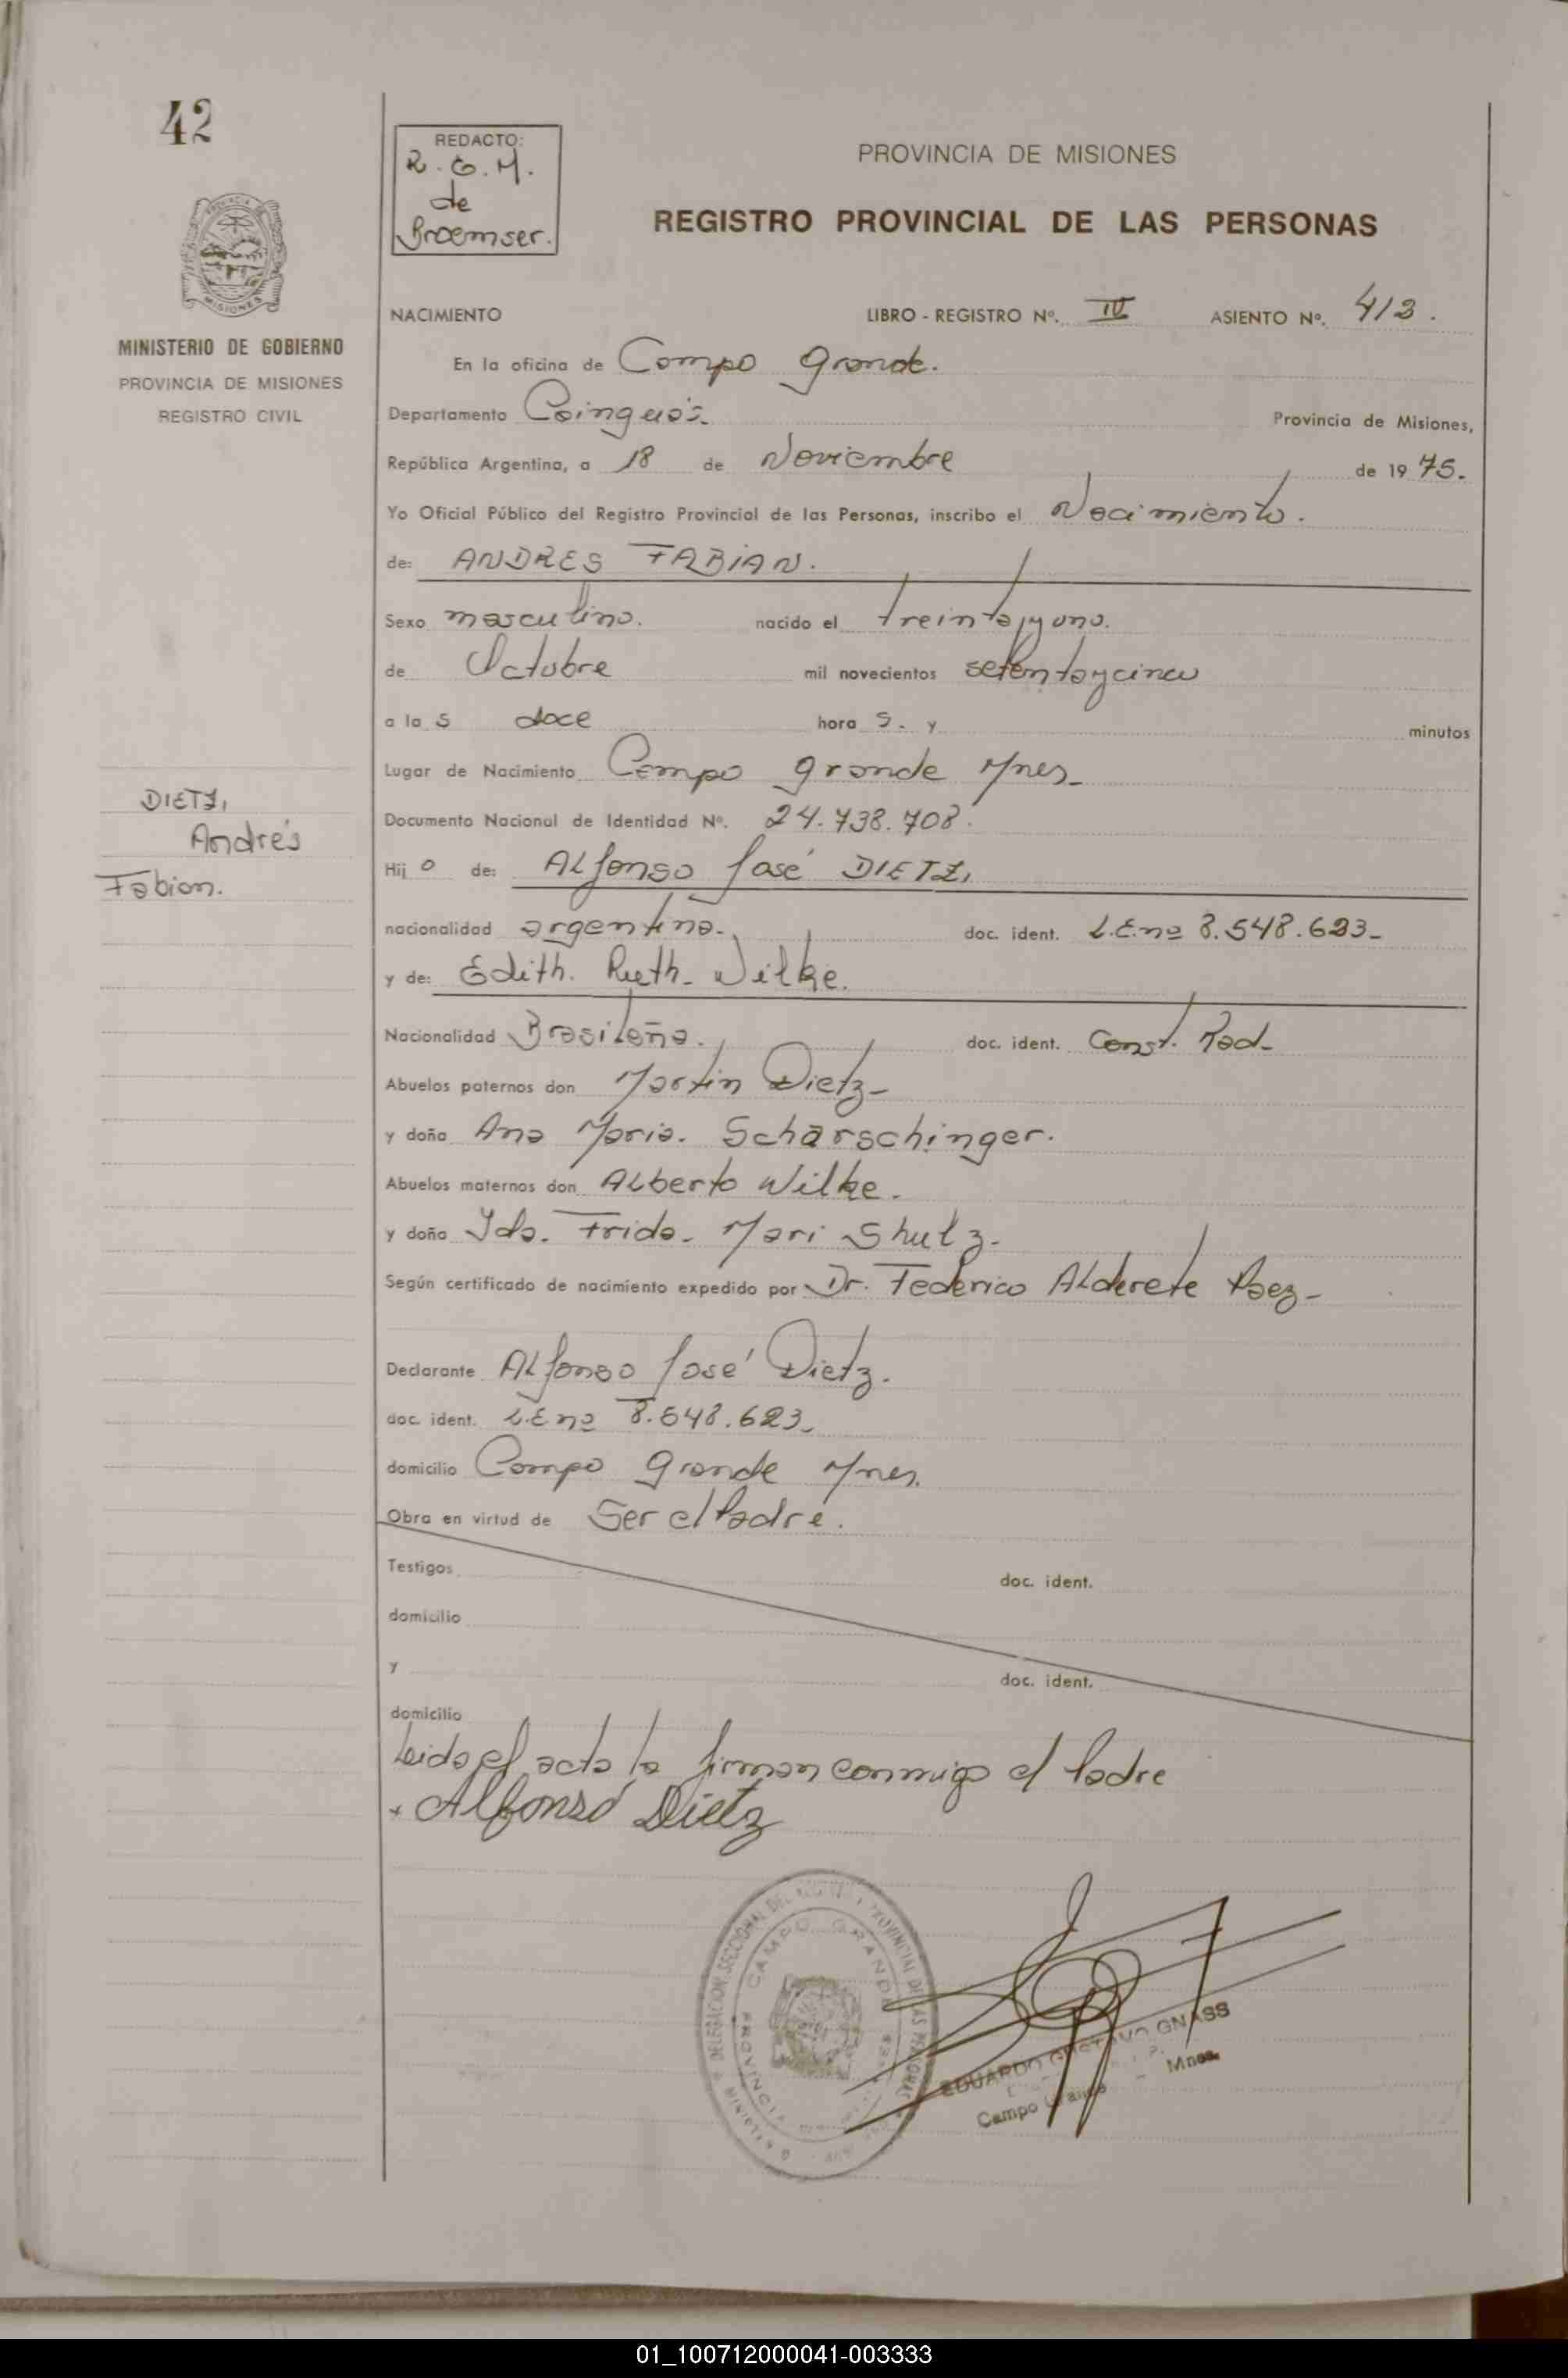 42
REDACTO:
R.G.M.
de
Broemser.
PROVINCIA DE MISIONES
REGISTRO PROVINCIAL DE LAS PERSONAS
MISIONES
MINISTERIO DE GOBIERNO
PROVINCIA DE MISIONES
REGISTRO CIVIL
NACIMIENTO LIBRO - REGISTRO Nº. IV ASIENTO Nº. 413.
En la oficina de Campo Grande.
Departamento Cainguás Provincia de Misiones,
República Argentina, a 18 de Noviembre de 1975.
Yo Oficial Público del Registro Provincial de las Personas, inscribo el Nacimiento.
de: ANDRES FABIAN.
Sexo masculino. nacido el treintayuno.
de Octubre mil novecientos setentaycinco
a la s doce hora s. y minutos
Lugar de Nacimiento Campo grande Mnes-
Documento Nacional de Identidad Nº. 24.738.708.
DIETZ,
Andrés
Fabian.
Hij o de: Alfonso José DIETZ,
nacionalidad argentina. doc. ident. L.E.nº 8.548.623-
y de: Edith. Ruth. Wilke.
Nacionalidad Brasileña. doc. ident. Const. Rad-
Abuelos paternos don Martin Dietz-
y doña Ana Maria. Scharschinger.
Abuelos maternos don Alberto Wilke.
y doña Ida. Frida. Mari Shulz-
Según certificado de nacimiento expedido por Dr. Federico Alderete Paez-
Declarante Alfonso José Dietz.
doc. ident. L.E nº 8.548.623-
domicilio Campo grande Mnes.
Obra en virtud de Ser el Padre.
Testigos doc. ident.
domicilio
y doc. ident.
domicilio
Leida el acta la firman conmigo el Padre
+ Alfonso Dietz
DELEGACION SECCIONAL DEL PROVINCIAL DE LAS PERSONAS
CAMPO GRANDE
PROVINCIA
EDUARDO GUSTAVO GNASS
Campo Grande - Mnes.
01_100712000041-003333